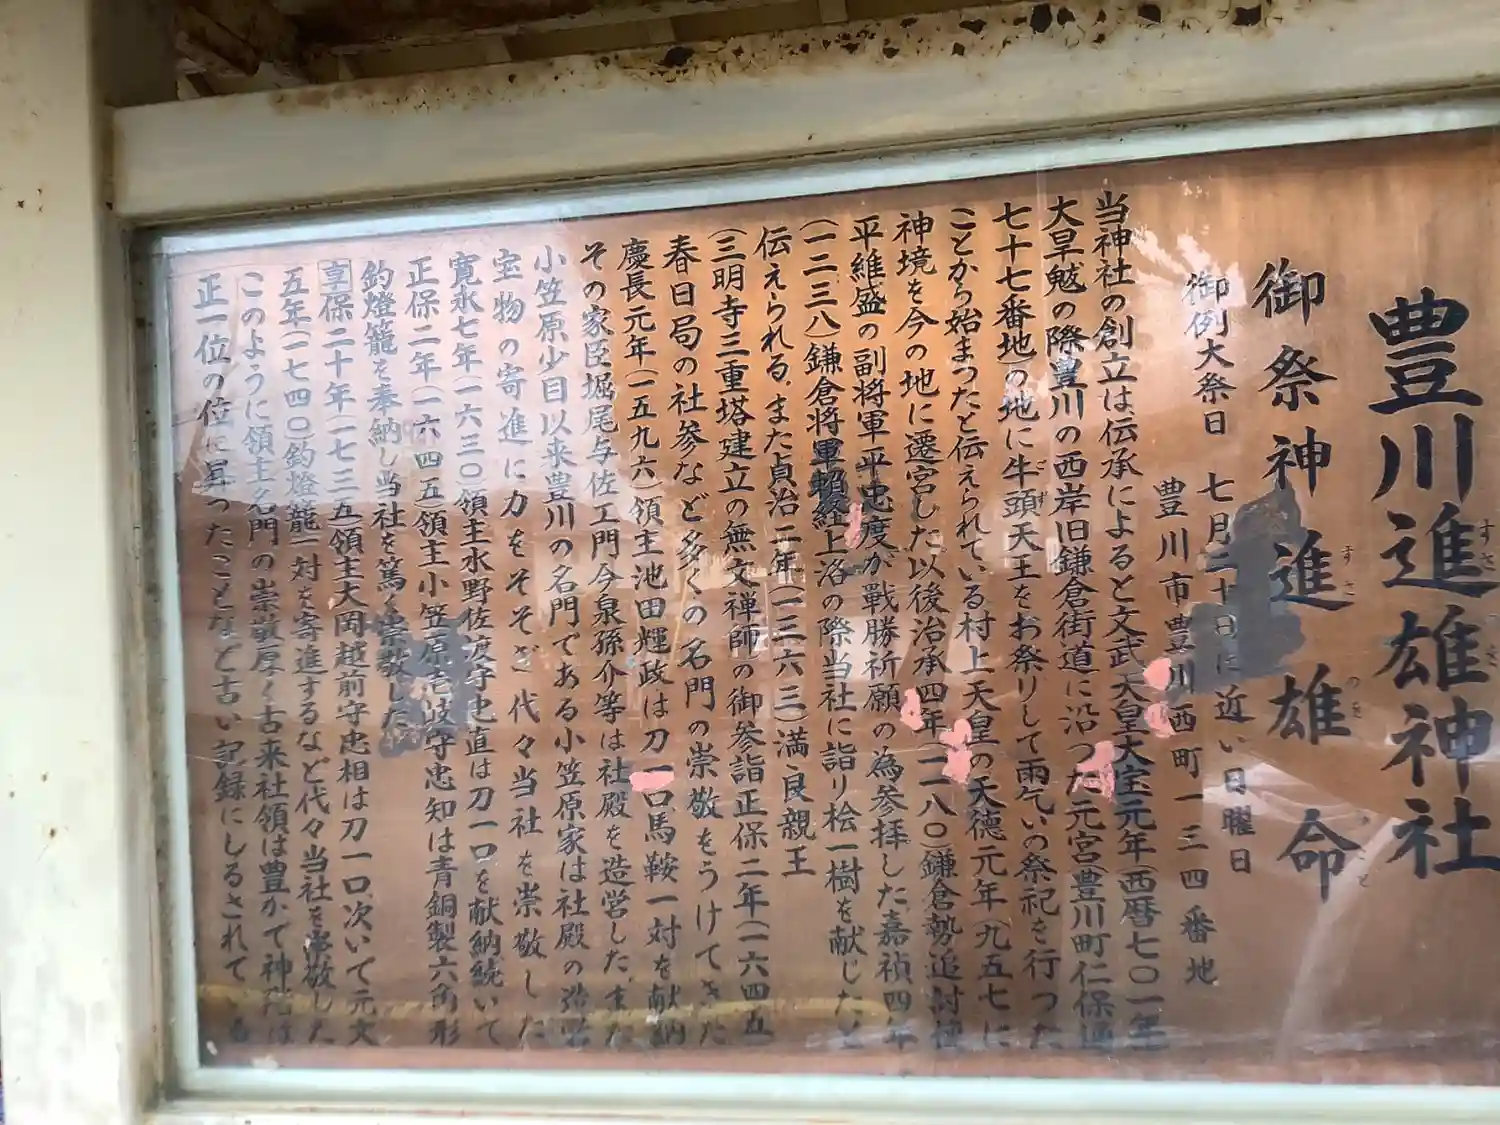 豊川進雄神社
すさ の お
御祭神 進雄命
すさ の を の みこと
御例大祭日 七月二十日に近い日曜日
豊川市豊川西町一三四番地
当神社の創立は伝承によると文武天皇大宝元年(西暦七〇一年
大旱魃の際豊川の西岸旧鎌倉街道に沿った元宮豊川町仁保通
七十七番地の地に牛頭天王をお祭りして雨乞いの祭祀を行った
ことから始まったと伝えられている村上天皇の天徳元年(九五七に
神境を今の地に遷宮した以後治承四年(一一八〇)鎌倉勢追討使
平維盛の副将軍平忠度が戦勝祈願の為参拝した嘉禎四年
(一二三八)鎌倉将軍頼経上洛の際当社に詣り桧一樹を献じたと
伝えられる、また貞治二年(一三六三)満良親王
(三明寺三重塔建立の無文禅師の御参詣正保二年(一六四五
春日局の社参など多くの名門の崇敬をうけてきた
慶長元年(一五九六)領主池田輝政は刀一口馬鞍一対を献納
その家臣堀尾与佐工門今泉孫介等は社殿を造営した、また
小笠原少目以来豊川の名門である小笠原家は社殿の造営
宝物の寄進に力をそそぎ代々当社を崇敬した
寛永七年(一六三〇)領主水野佐渡守忠直は刀一口を献納続いて
正保二年(一六四五)領主小笠原壱岐守忠知は青銅製六角形
釣燈籠を奉納し当社を篤く崇敬した
享保二十年(一七三五)領主大岡越前守忠相は刀一口、次いで元文
五年(一七四〇)釣燈籠一対を寄進するなど代々当社を崇敬した
このように領主名門の崇敬厚く古来社領は豊かで神階は
正一位の位に昇ったことなど古い記録にしるされている